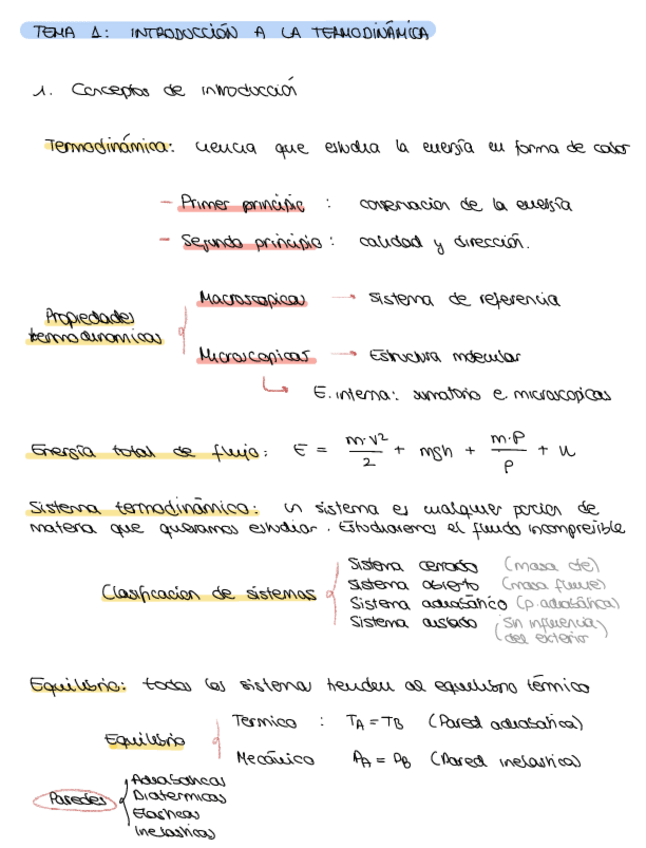 TEMA 1: INTRODUCCIÓN A LA TERMODINÁMICA
1. Conceptos de introducción
Termodinámica: ciencia que estudia la energía en forma de calor
- Primer principio : conservacion de la energía
- Segundo principio : calidad y dirección.
Propiedades termodinamicas
Macroscopicas → Sistema de referencia
Microscopicas → Estructura molecular
E. interna: sumatorio e. microscopicas
Energía total de flujo: E = m·v²/2 + mgh + m·P/ρ + u
Sistema termodinámico: un sistema es cualquier porcion de
materia que queramos estudiar. Estudiaremos el fluido incompresible
Clasificacion de sistemas
Sistema cerrado (masa cte)
Sistema abierto (masa fluye)
Sistema adiabático (p. adiabática)
Sistema aislado (sin influencia
del exterior)
Equilibrio: todos los sistemas tienden al equilibrio térmico
Equilibrio
Termico : TA = TB (Pared adiabatica)
Mecánico PA = PB (Pared inelastica)
Paredes
Adiabaticas
Diatermicas
Elasticas
Inelasticas